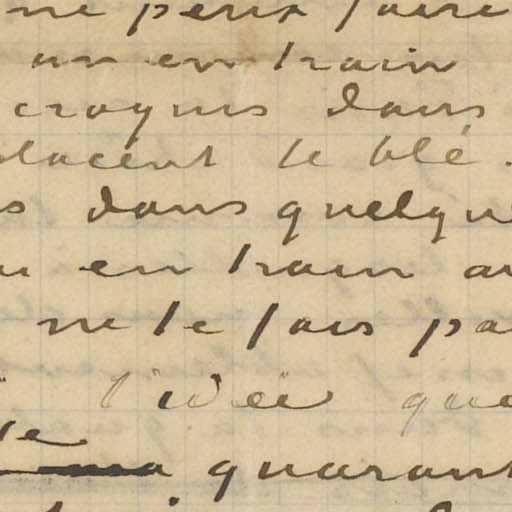 ne peux faire
un en train
croquis dans
placent le blé.
s dans quelqu
u en train au
ne le fais pa
l'idée que
te
quarant